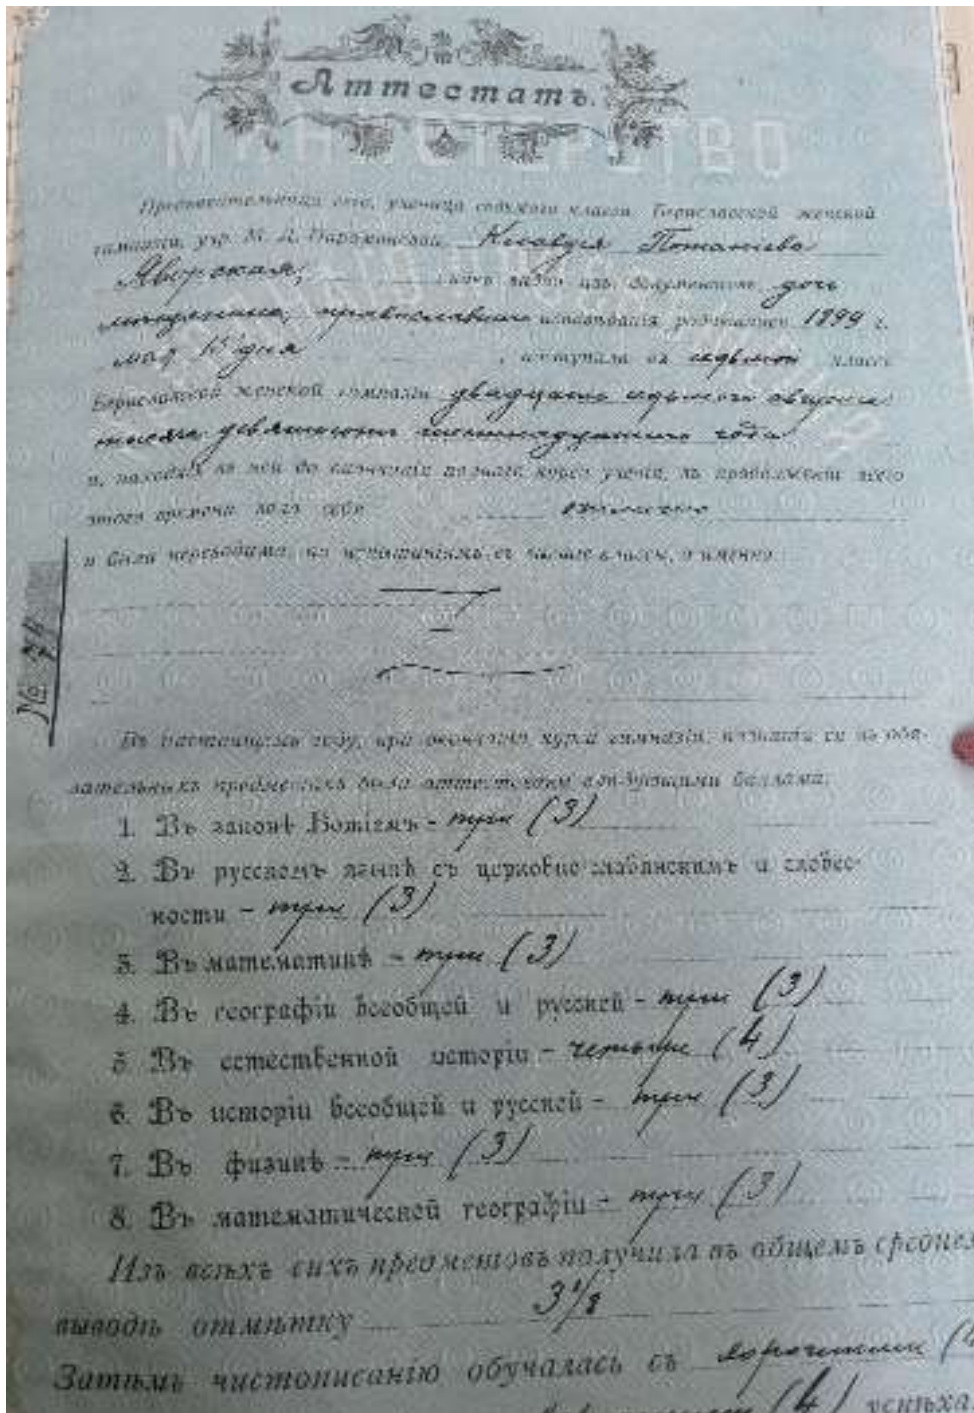 Аттестатъ.
МИНИСТЕРСТВО
Предъявительница сего, ученица седьмого класса Бериславской женской
гимназіи, учр. М. Д. Парамоновой, Клавдія Потапіева
Яворская, какъ видно изъ документовъ, дочь
мѣщанина, православнаго исповѣданія, родившаяся 1899 г.
мая 15 дня, поступила въ седьмой классъ
Бериславской женской гимназіи двадцать седьмого августа
тысяча девятьсотъ шестнадцатаго года
и, находясь въ ней до окончанія полнаго курса ученія, въ продолженіи всего
этого времени вела себя отлично
и была переводима, по испытаніямъ, въ высшіе классы, а именно:
№ 74
Въ настоящемъ году, при окончаніи курса гимназіи, познанія ея въ обя-
зательныхъ предметахъ были аттестованы слѣдующими баллами:
1. Въ законѣ Божіемъ - три (3)
2. Въ русскомъ языкѣ съ церковно-славянскимъ и словес-
ности - три (3)
3. Въ математикѣ - три (3)
4. Въ географіи всеобщей и русской - три (3)
5. Въ естественной исторіи - четыре (4)
6. Въ исторіи всеобщей и русской - три (3)
7. Въ физикѣ - три (3)
8. Въ математической географіи - три (3)
Изъ всѣхъ сихъ предметовъ получила въ общемъ среднемъ
выводѣ отмѣтку 3 1/8
Затѣмъ чистописанію обучалась съ хорошими (4
(4) успѣха